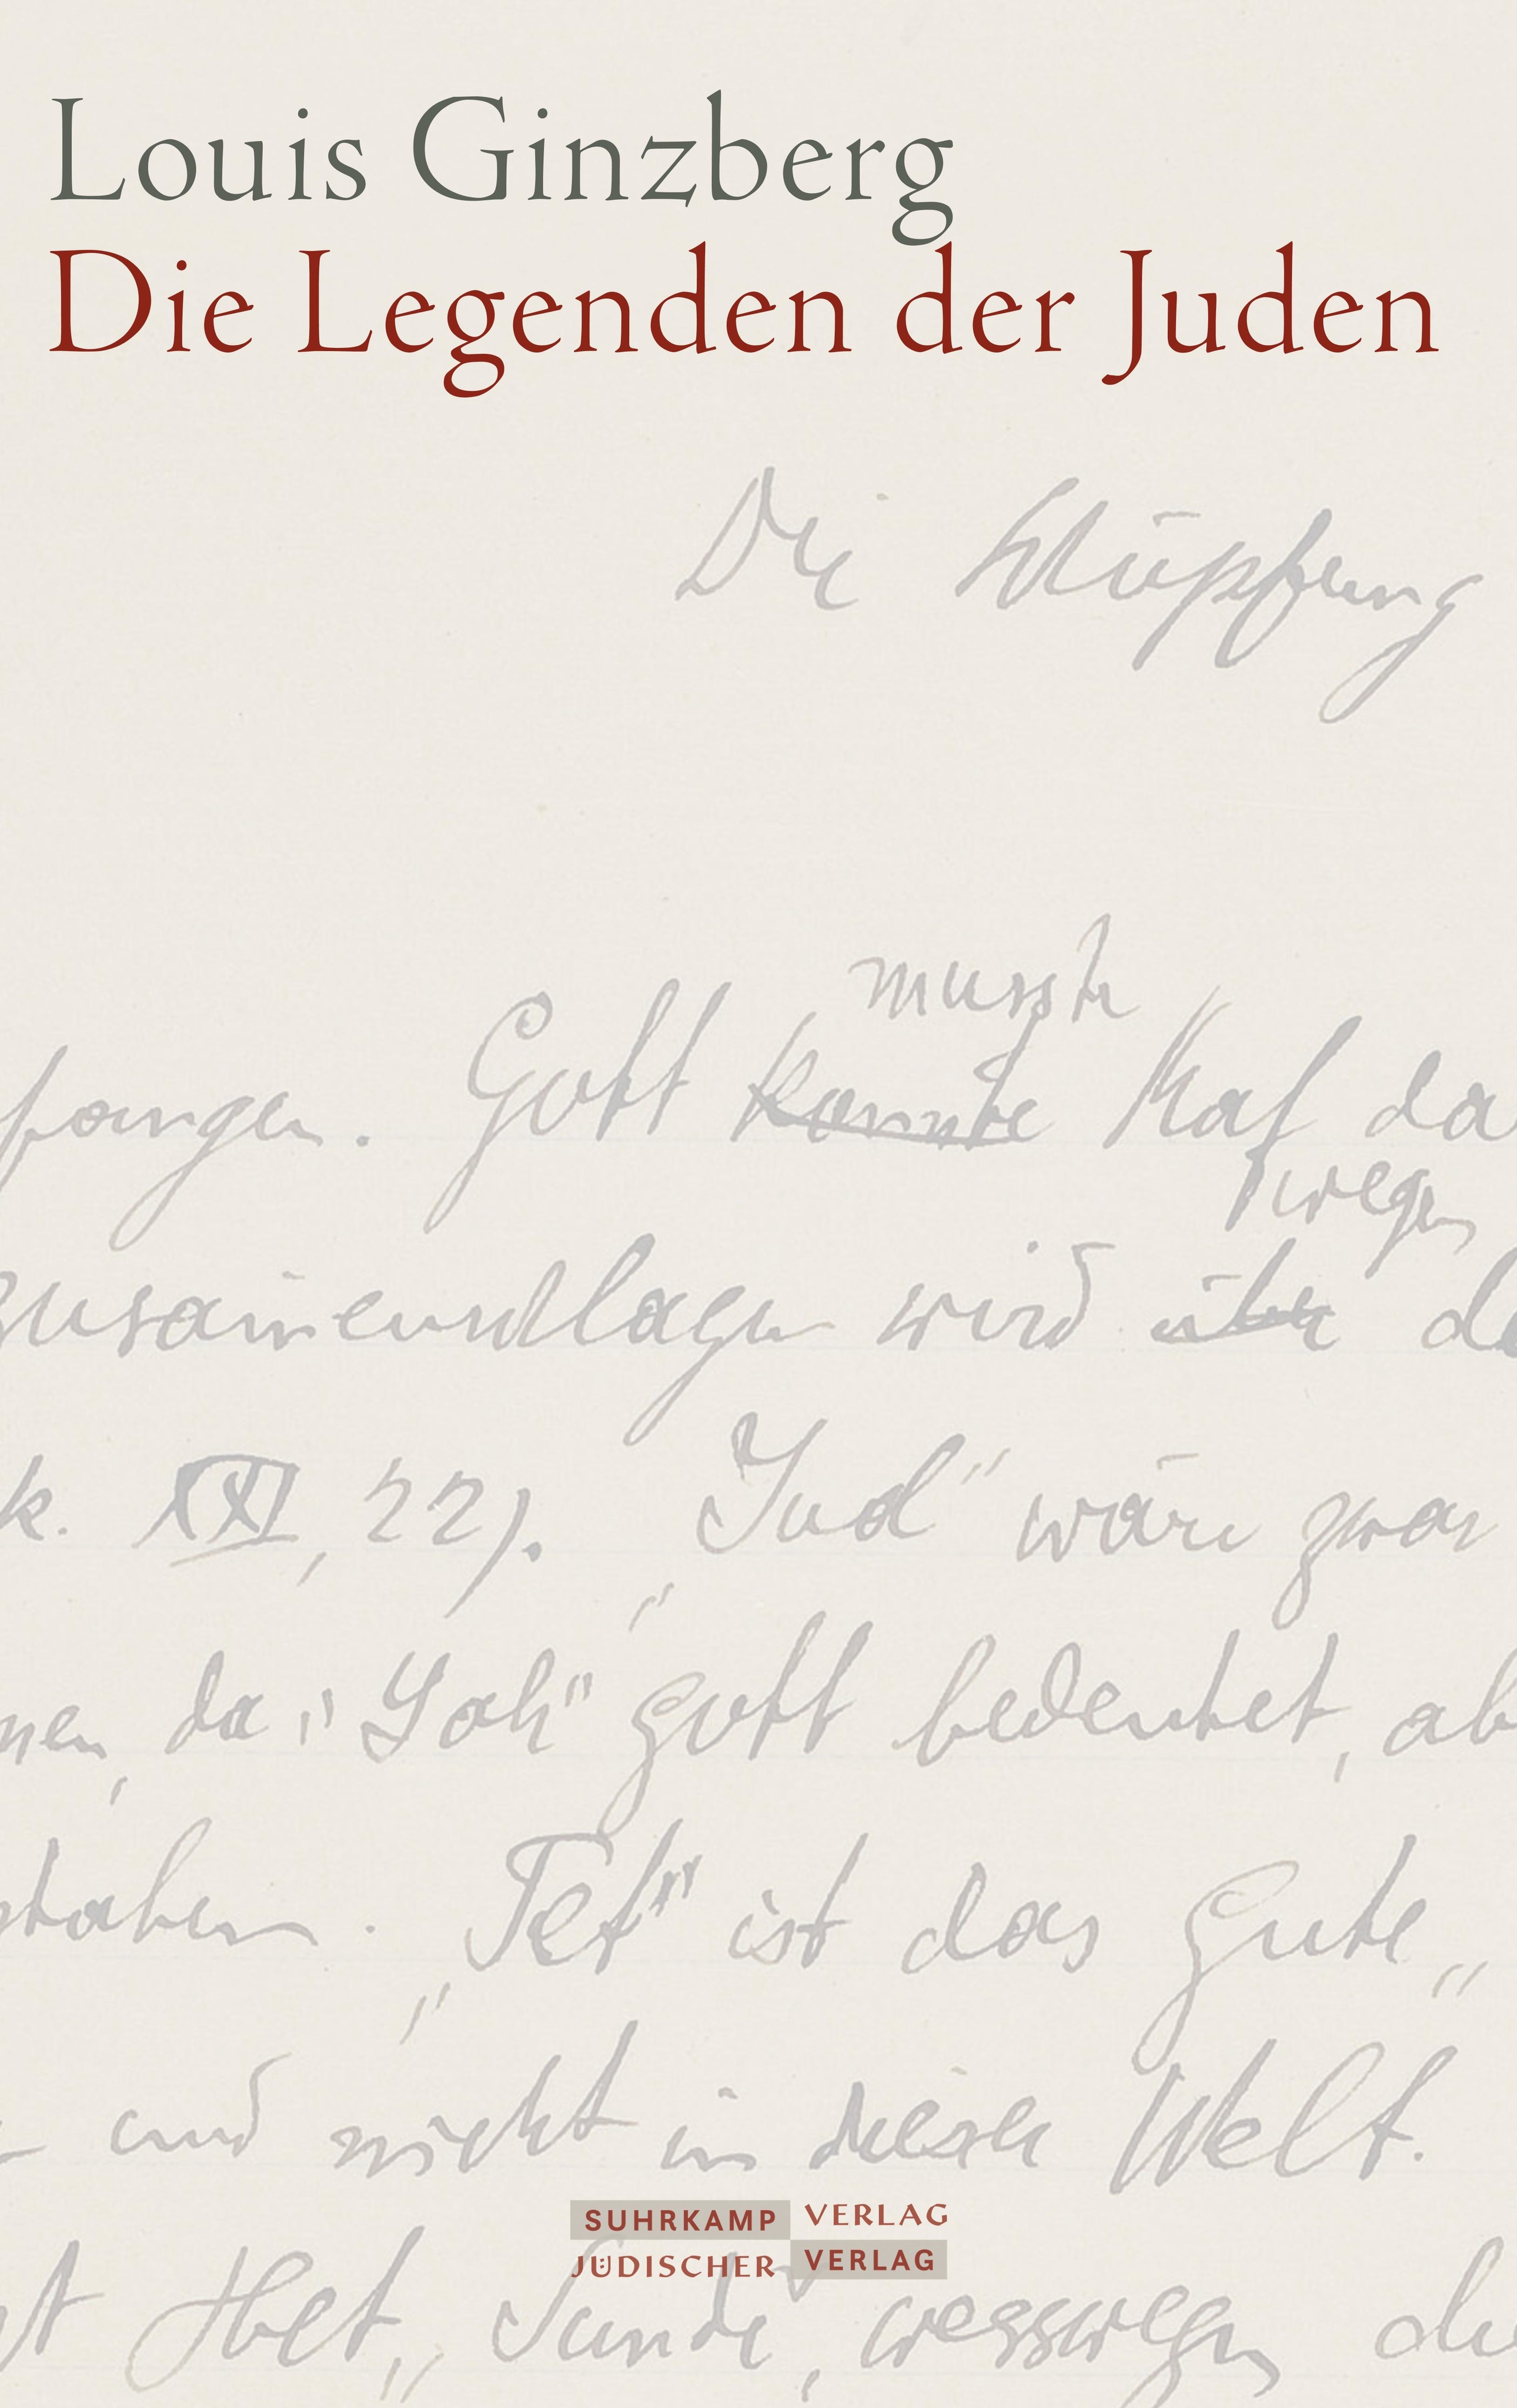 Louis Ginzberg
Die Legenden der Juden
Die Schöpfung
musste
fangen. Gott konnte Kaf da
wegen
zusammenschlagen wird über de
k. XXI, 22). „Jud" wäre zwar
nen, da „Yah" Gott bedeutet, ab
staben. „Tet" ist das Gute„
und nicht in dieser Welt.
SUHRKAMP VERLAG
JÜDISCHER VERLAG
Het„ Sünde, wesswegen